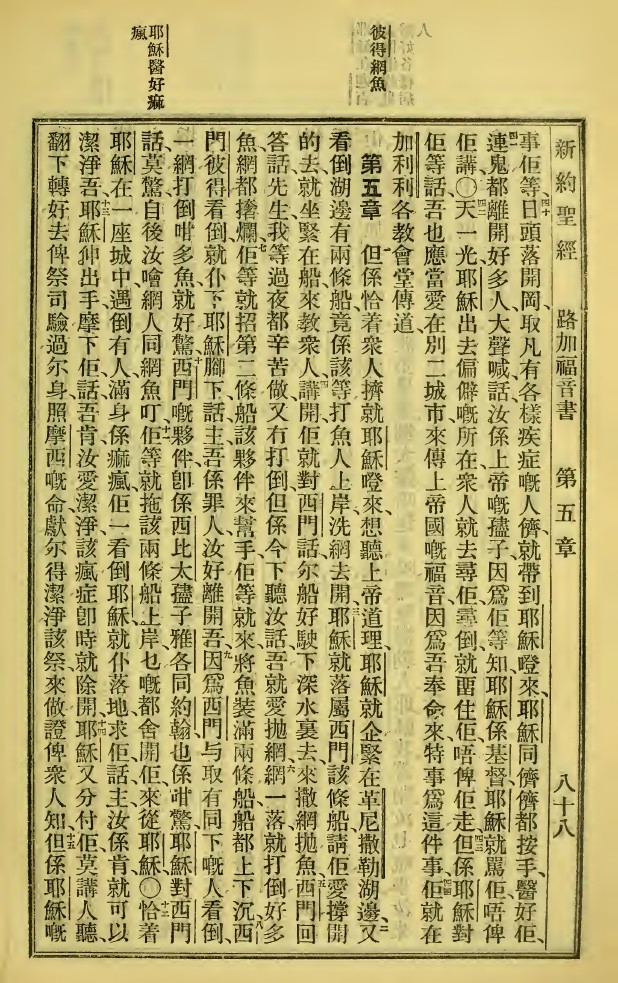 新約聖經 路加福音書 第五章 八十八
彼得網魚
耶穌醫好痲瘋
事佢等、四十日頭落開岡、取凡有各樣疾症嘅人儕、就帶到耶穌嶝來、耶穌同儕儕都按手、醫好佢、
四一連鬼都離開好多人大聲喊話汝係上帝嘅孻子因爲佢等知耶穌係基督、耶穌就罵佢唔俾
佢講〇四二天一光耶穌出去偏僻嘅所在衆人就去尋佢尋倒就畱住佢唔俾佢走四三但係耶穌對
佢等話吾也應當愛在別二城市、來傳上帝國嘅福音因爲吾奉命來特事爲這件事、四四佢就在
加利利各教會堂傳道
第五章 但係恰着衆人擠就耶穌嶝來、想聽上帝道理、耶穌就企緊在革尼撒勒湖邊、二又
看倒湖邊有兩條船竟係該等打魚人上岸洗網去開、三耶穌就落屬西門該條船、請佢愛撐開
的去就坐緊在船來教衆人、四講開佢就對西門話尔船好駛下深水裏去、來撒網抛魚、五西門回
答話先生、我等過夜都辛苦做、又冇打倒但係今下聽汝話吾就愛抛網、六網一落就打倒好多
魚網都㩧爛、七佢等就招第二條船該夥伴來幫手佢等就來將魚裝滿兩條船船都上下沉、八西
門彼得看倒就仆下耶穌腳下話主吾係罪人汝好離開吾、九因爲西門与取有同下嘅人看倒、
一網打倒咁多魚就好驚、十西門嘅夥伴卽係西比太孻子雅各同約翰也係咁驚耶穌對西門
話莫驚自後汝噲網人同網魚叮、十一佢等就拖該兩條船上岸乜嘅都舍開佢、來從耶穌〇十二恰着
耶穌在一座城中、遇倒有人、滿身係痲瘋佢一看倒耶穌就仆落地求佢話主汝係肯就可以
潔淨吾、十三耶穌伸出手摩下佢話吾肯汝愛潔淨該瘋症卽時就除開、十四耶穌又分付佢莫講人聽、
翻下轉好去俾祭司驗過尔身照摩西嘅命獻尔得潔淨該祭來做證俾衆人知、十五但係耶穌嘅